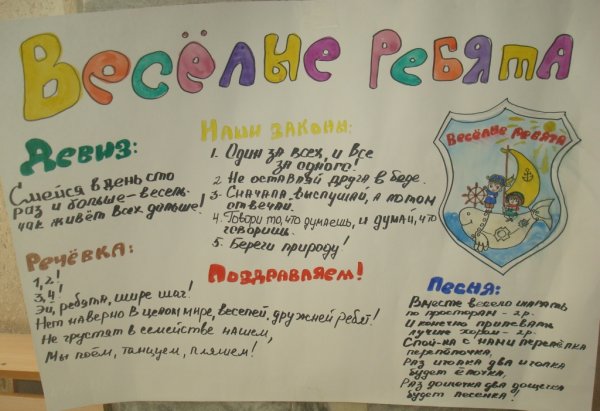 Весёлые ребята
Девиз:
Смейся в день сто
раз и больше – весель-
чак живёт всех дольше!
Наши законы:
1. Один за всех, и все
за одного!
2. Не оставляй друга в беде.
3. Сначала выслушай, а потом
отвечай.
4. Говори то, что думаешь, и думай, что
говоришь.
5. Береги природу!
ВЕСЁЛЫЕ РЕБЯТА
Речёвка:
1, 2!
3, 4!
Эй, ребята, шире шаг!
Нет наверно в целом мире, веселей, дружней ребят!
Не грустят в семействе нашем,
Мы поём, танцуем, пляшем!
Поздравляем!
Песня:
Вместе весело шагать
по просторам – 2р.
И конечно припевать
лучше хором – 2р.
Спой-ка с нами перепёлка
перепёлочка,
Раз иголка два иголка
будет ёлочка,
Раз дощечка два дощечка
будет лесенка!